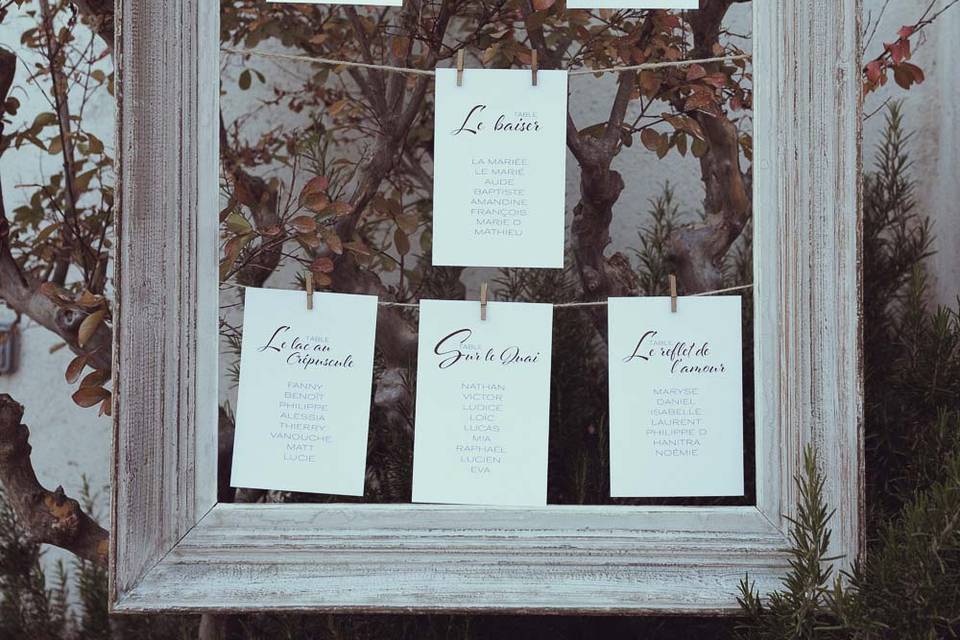 TABLE
Le baiser
LA MARIÉE
LE MARIÉ
AUDE
BAPTISTE
AMANDINE
FRANÇOIS
MARIE D
MATHIEU
TABLE
Le lac au
Crépuscule
FANNY
BENOÎT
PHILIPPE
ALESSIA
THIERRY
VANOUCHE
MATT
LUCIE
TABLE
Sur le Quai
NATHAN
VICTOR
LUDICE
LOÏC
LUCAS
MIA
RAPHAËL
LUCIEN
EVA
TABLE
Le reflet de
l'amour
MARYSE
DANIEL
ISABELLE
LAURENT
PHILIPPE D
HANITRA
NOÉMIE